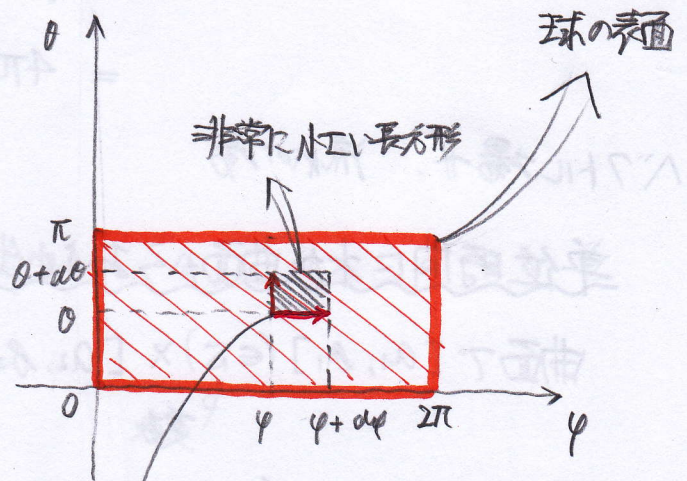 θ
球の表面
非常に小さい長方形
π
θ+dθ
θ
0
φ
φ+dφ
2π
φ